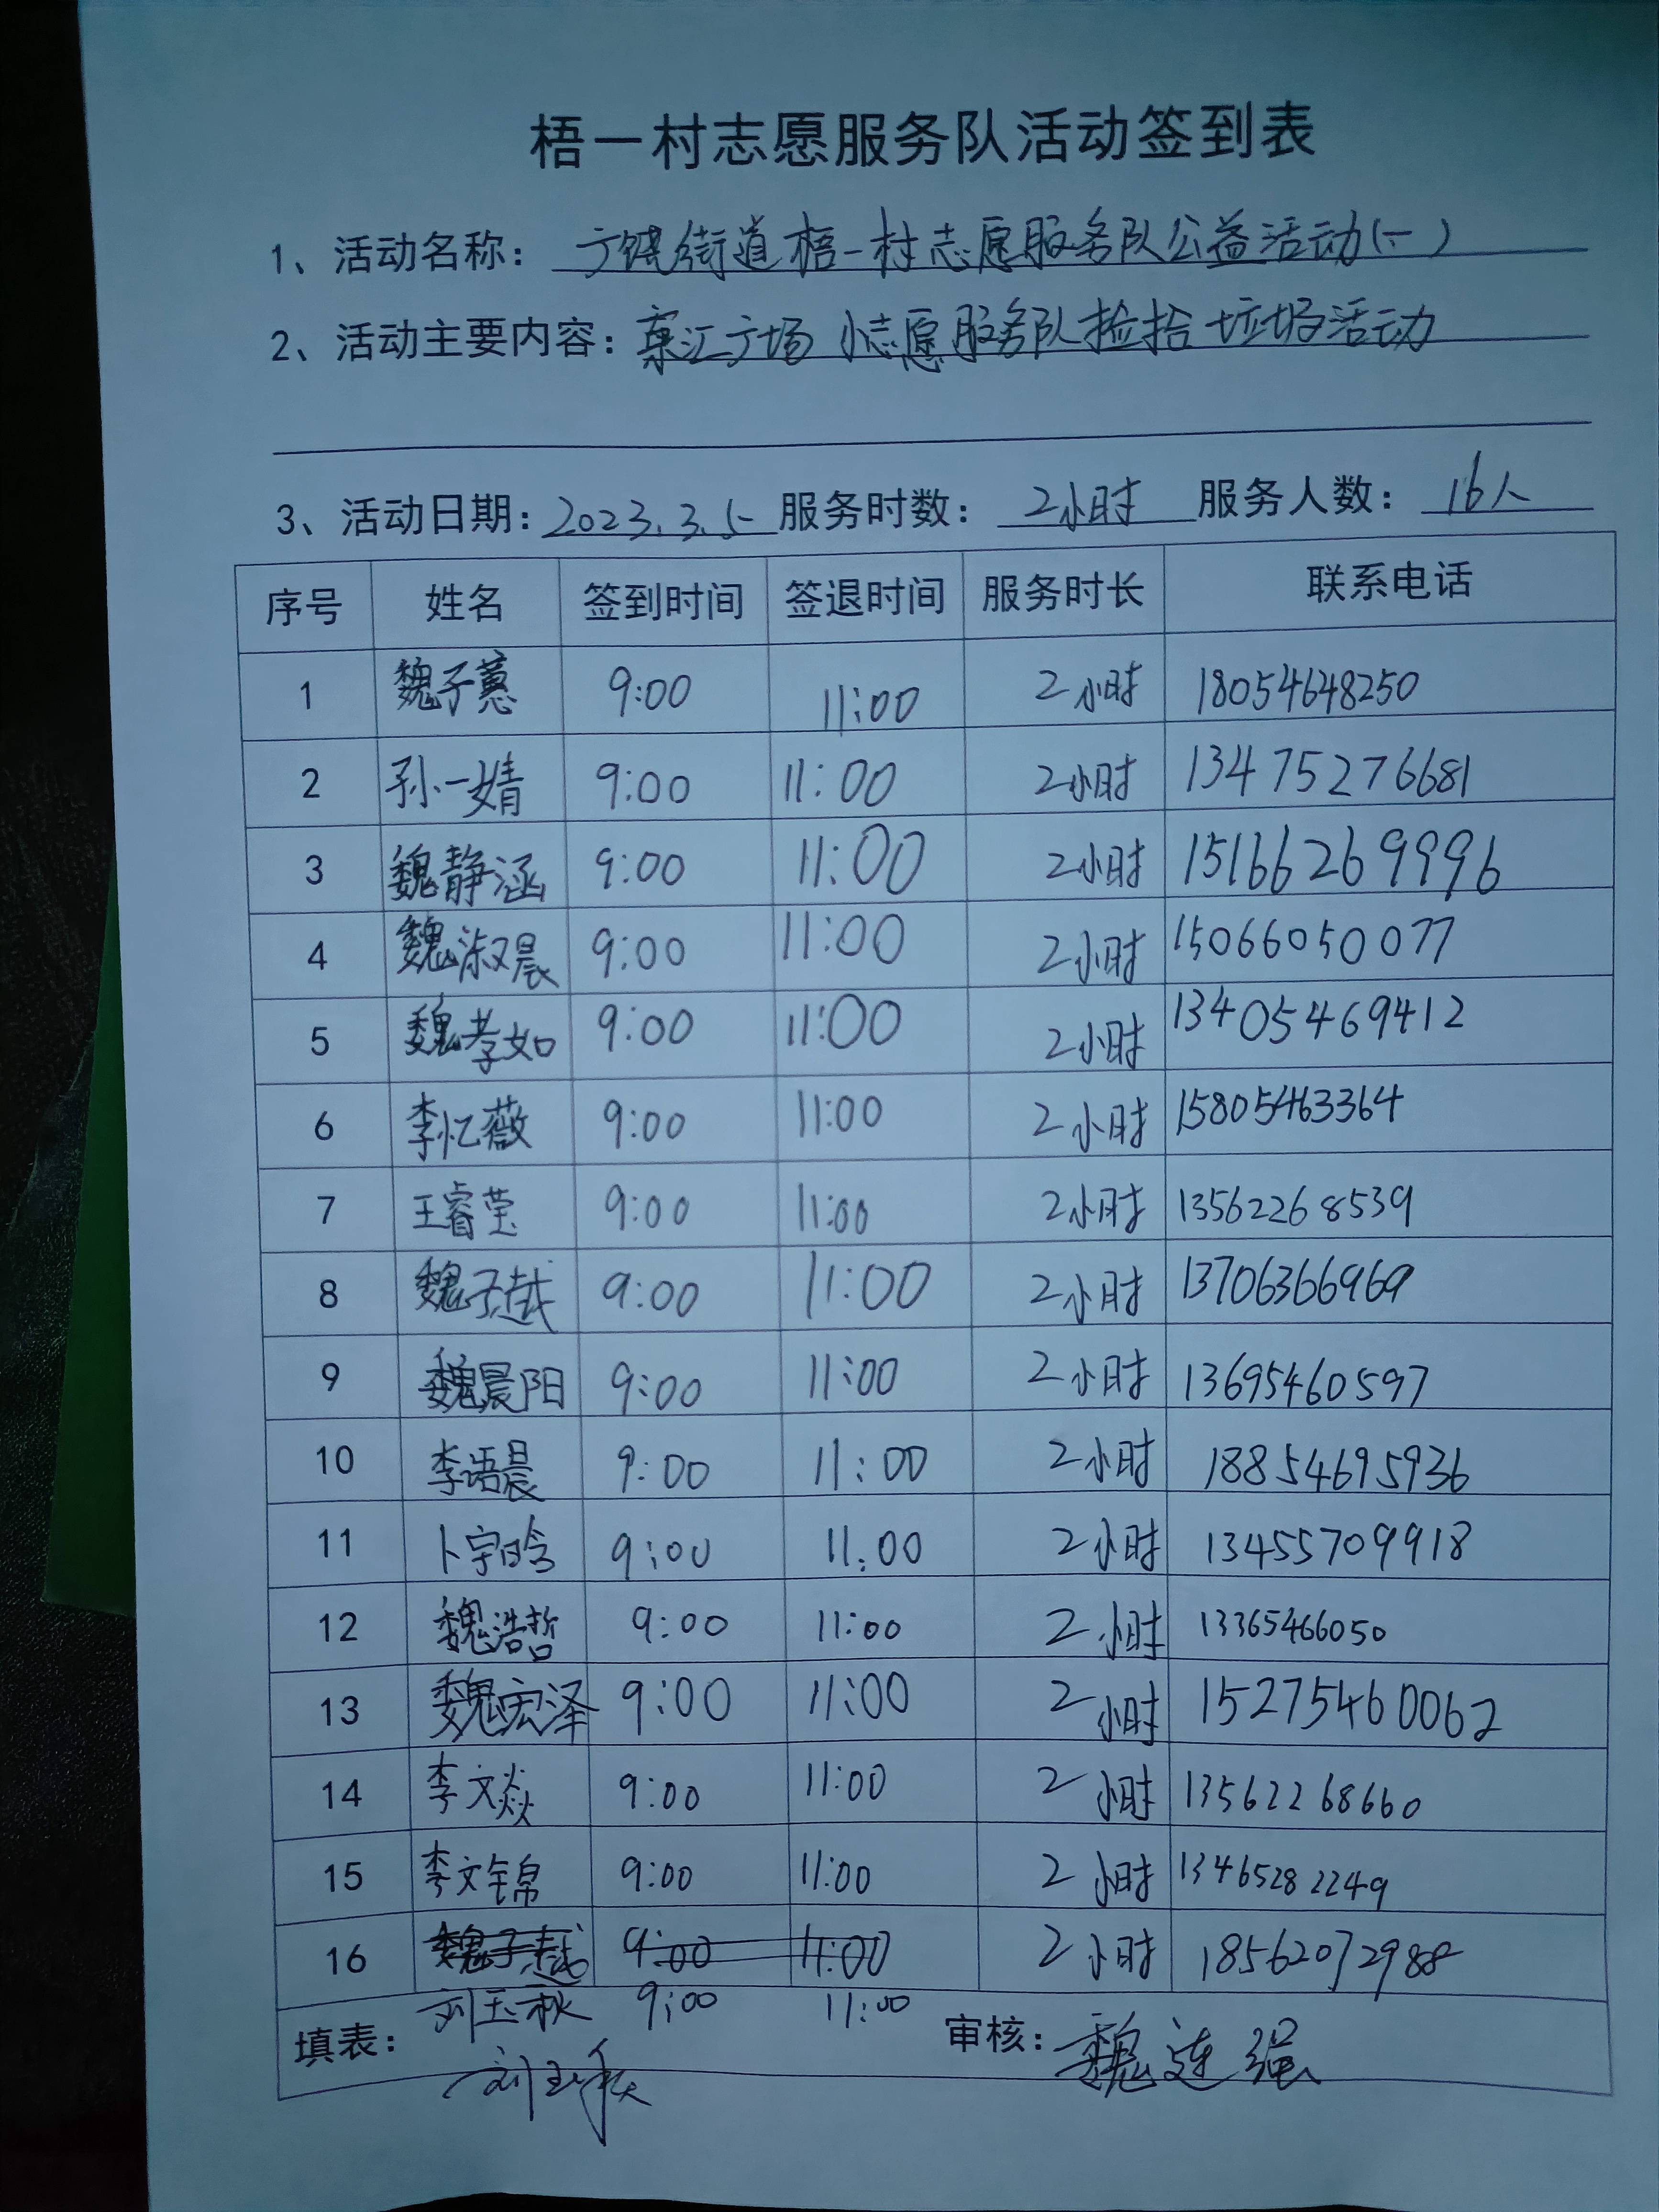 梧一村志愿服务队活动签到表
1、活动名称：方镇街道梧一村志愿服务队公益活动(一)
2、活动主要内容：广场小志愿服务队捡拾垃圾活动
3、活动日期：2023.3.5 服务时数：2小时 服务人数：16人
序号 姓名 签到时间 签退时间 服务时长 联系电话
1 魏子蕙 9:00 11:00 2小时 18054648250
2 孙一婧 9:00 11:00 2小时 13475276681
3 魏静涵 9:00 11:00 2小时 15166269996
4 魏淑晨 9:00 11:00 2小时 15066050077
5 魏孝如 9:00 11:00 2小时 13405469412
6 李忆薇 9:00 11:00 2小时 15805463364
7 王睿莹 9:00 11:00 2小时 13562268539
8 魏子越 9:00 11:00 2小时 13706366969
9 魏晨阳 9:00 11:00 2小时 13695460597
10 李语晨 9:00 11:00 2小时 18854695936
11 卜宇晗 9:00 11:00 2小时 13455709918
12 魏浩哲 9:00 11:00 2小时 13365466050
13 魏宏泽 9:00 11:00 2小时 15275460062
14 李文焱 9:00 11:00 2小时 13562268660
15 李文锦 9:00 11:00 2小时 13465282249
16 魏子越 9:00 11:00 2小时 18562072988
刘玉秋 9:00 11:00
填表：刘玉秋 审核：魏连强